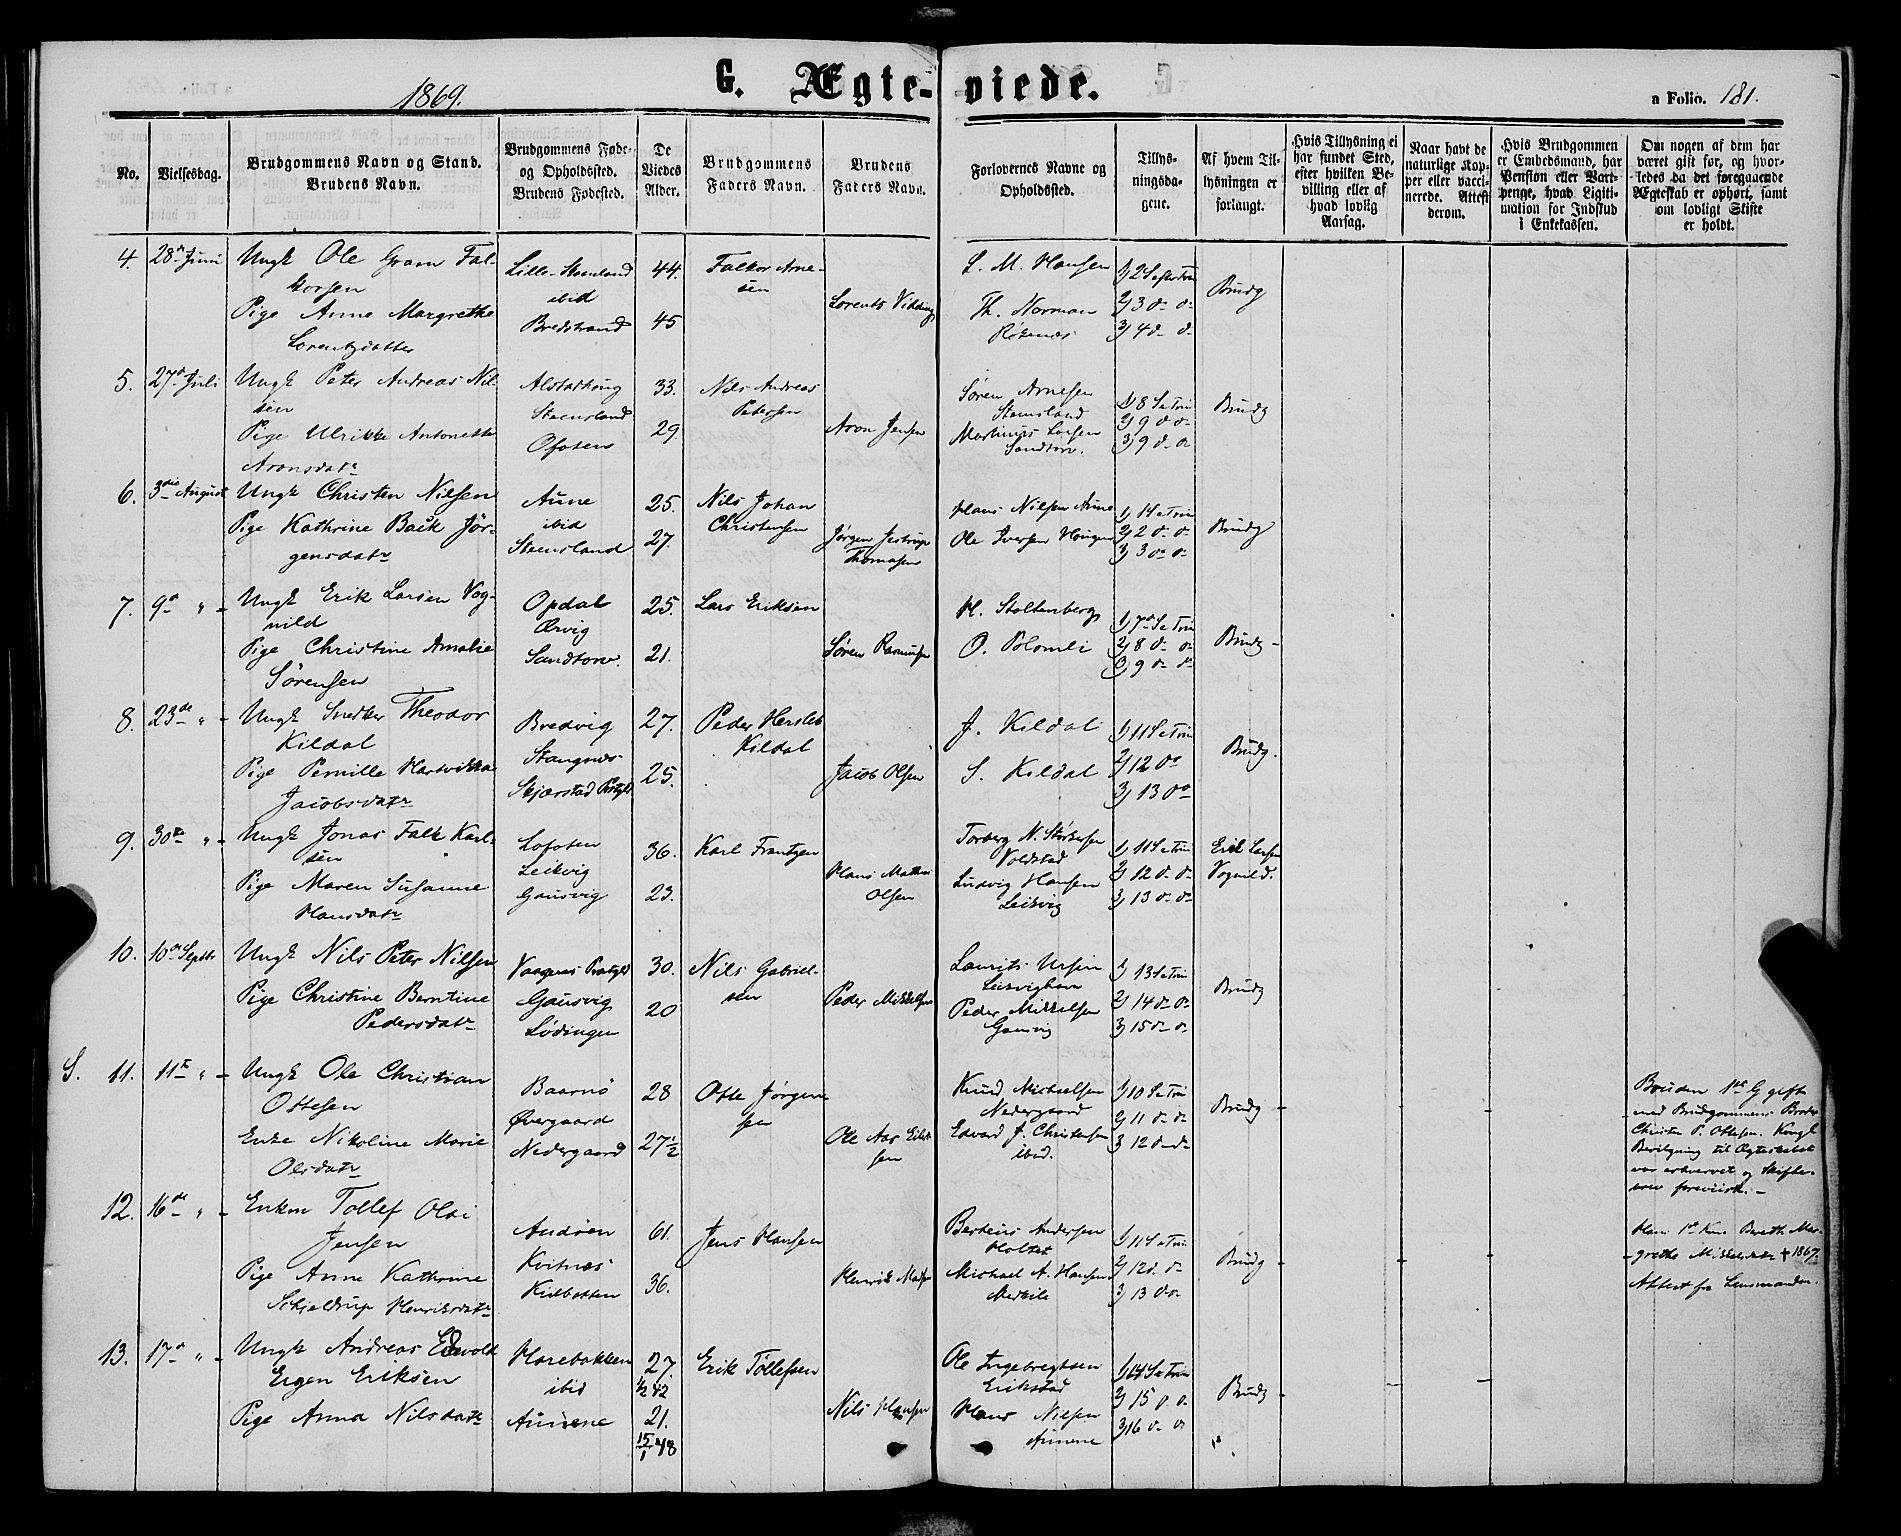 1869.
G. Ægte-viede.
a Folio. 181.
No.
Vielsesdag.
Brudgommens Navn og Stand.
Brudens Navn.
Brudgommens Føde-
og Opholdssted.
Brudens Fødested.
De
Viedes
Alder.
Brudgommens
Faders Navn.
Brudens
Faders Navn.
Forlovernes Navne og
Opholdssted.
Tillys-
ningsda-
gene.
Af hvem Til-
lysningen er
forlangt.
Hvis Tillysning ei
har fundet Sted,
efter hvilken Be-
villing eller af
hvad lovlig
Aarsag.
Naar havt de
naturlige Kop-
per eller vacci-
nerede. Attest
derom.
Hvis Brudgommen
er Embedsmand, har
Pension eller Vart-
penge, hvad Ligiti-
mation for Indskud
i Enkekassen.
Om nogen af dem har
været gift før, og hvor-
ledes da det foregaaende
Ægteskab er ophørt, samt
om lovligt Skifte
er holdt.
4. 28de Juni
Ungk Ole Gram Fal-
korsen
Pige Anne Margrethe
Lorentzdatter
Lille-Steensland
ibid
Bredstrand
44.
45
Falkor Arne-
sen
Lorents Vidding
L. M. Hansen
Th. Norman
Røkenæs
1) 2 S efter Trin
2) 3 d- d-
3) 4 d- d-
Brudg
5. 27de Juli
Ungk Peter Andreas Nil-
sen
Pige Ulrikke Antonette
Aronsdatr
Steensland
Ofoten
33.
29.
Nils Andreas
Petersen
Aron Jensen
Søren Arnesen
Steensland
Martinus Larsen
Sandtorv.
1) 8 S e Trin
2) 9 d d-
3) 9 d- d-
Brudg
6. 3die August
Ungk Christen Nilsen
Pige Kathrine Baük Jör-
gensdatr
Aune
ibid
Steensland
25.
27.
Nils Johan
Christensen
Jørgen Jestrup
Thomasen
Hans Nilsen Aune
Ole Iversen Haugen
1) 1 S e Trin
2) 2 d- d-
3) 3 d- d-
Brudg
7. 9de " -
Ungk Erik Larsen Vog-
nild
Pige Christine Amalie
Sörensen
Opdal
Ørvig
Sandtorv.
25.
21.
Lars Eriksen
Søren Rasmussen
H. Stoltenberg
O. Polomli
1) 7de S e Trin
2) 8 d- d-
3) 9 d- d-
Brudg -
8. 23de " -
Ungk Snedker Theodor
Kildal
Pige Pernille Hartvikka
Jacobsdatr
Bredvig
Stangnæs
Skjærstad Prstgld
27.
25.
Peder Hersleb
Kildal
Jacob Olsen
J. Kildal
S. Kildal
1) 11 S e Trin
2) 12 d-
3) 13 d-
Brudg.
9. 30te " -
Ungk Jonas Falk Karl-
sen
Pige Maren Susanne
Hansdatr
Lofoten
Leikvig
Gausvig
36.
23.
Karl Frantzen
Hans Mathias
Olsen
Torberg N. Størkersen
Voldstad
Ludvig Hansen
Leikvig
1) 11 S e Trin
2) 12 d- d-
3) 13 d- d-
Erik Larsen
Vognild.
10. 10de Septbr
Ungk Nils Peter Nilsen
Pige Christine Berntine
Pedersdatr
Vaagenes Prstgld
Gausvig
Lødingen
30.
20
Nils Gabriel-
sen
Peder Mikkelsen
Laurits Ursin
Leikvighavn
Peder Mikkelsen
Gausvig
1) 13 S e Trin
2) 14 d- d-
3) 15 d- d-
Brudg
S. 11. 11te " -
Ungk Ole Christian
Ottesen
Enke Nikoline Marie
Olsdatr
Baarnö
Øvergaard
Nedergaard
28
27½
Otte Jørgen-
sen
Ole Aas Eilert-
sen
Knud Michaelsen
Nedergaard
Edvard J. Christensen
ibid.
1) 10 S e Trin
2) 11 d- d-
3 12 d- d-
Brudg -
Bruden 1ste G gift
med Brudgommens Broder
Christen P. Ottesen. Kongl
Bevilgning til Ægteskabet
var erhvervet og Skifte-
brev foreviist. -
12. 16de " -
Enkm Tollef Olai
Jensen
Pige Anne Kathrine
Schjeldrup Henriksdatr
Andöen
Kvitnæs
Kilbotten
61.
36.
Jens Hansen
Henrik Madsen
Berteus Andersen
Holtet
Michael A. Hansen
Melkile
1) 11 S e Trin
2) 12 d. d-
3) 13 d d-
Brudg -
Hans 1ste Kone Bereth Mar-
grethe Mikkelsdatr † 1867.
Attest fra Lensmanden.
13. 17de " -
Ungk Andreas Edvold
Eigen Eriksen
Pige Anna Nilsdatr
Harebakken
ibid
Aunene
27.
½ 42
21.
15/1 48
Erik Tollefsen
Nils Hansen
Ole Ingebregtsen
Erikstad
Hans Nilsen
Aunene
1) 14 S e Trin
2) 15 d d.
3) 16 d- d-
Brudg -